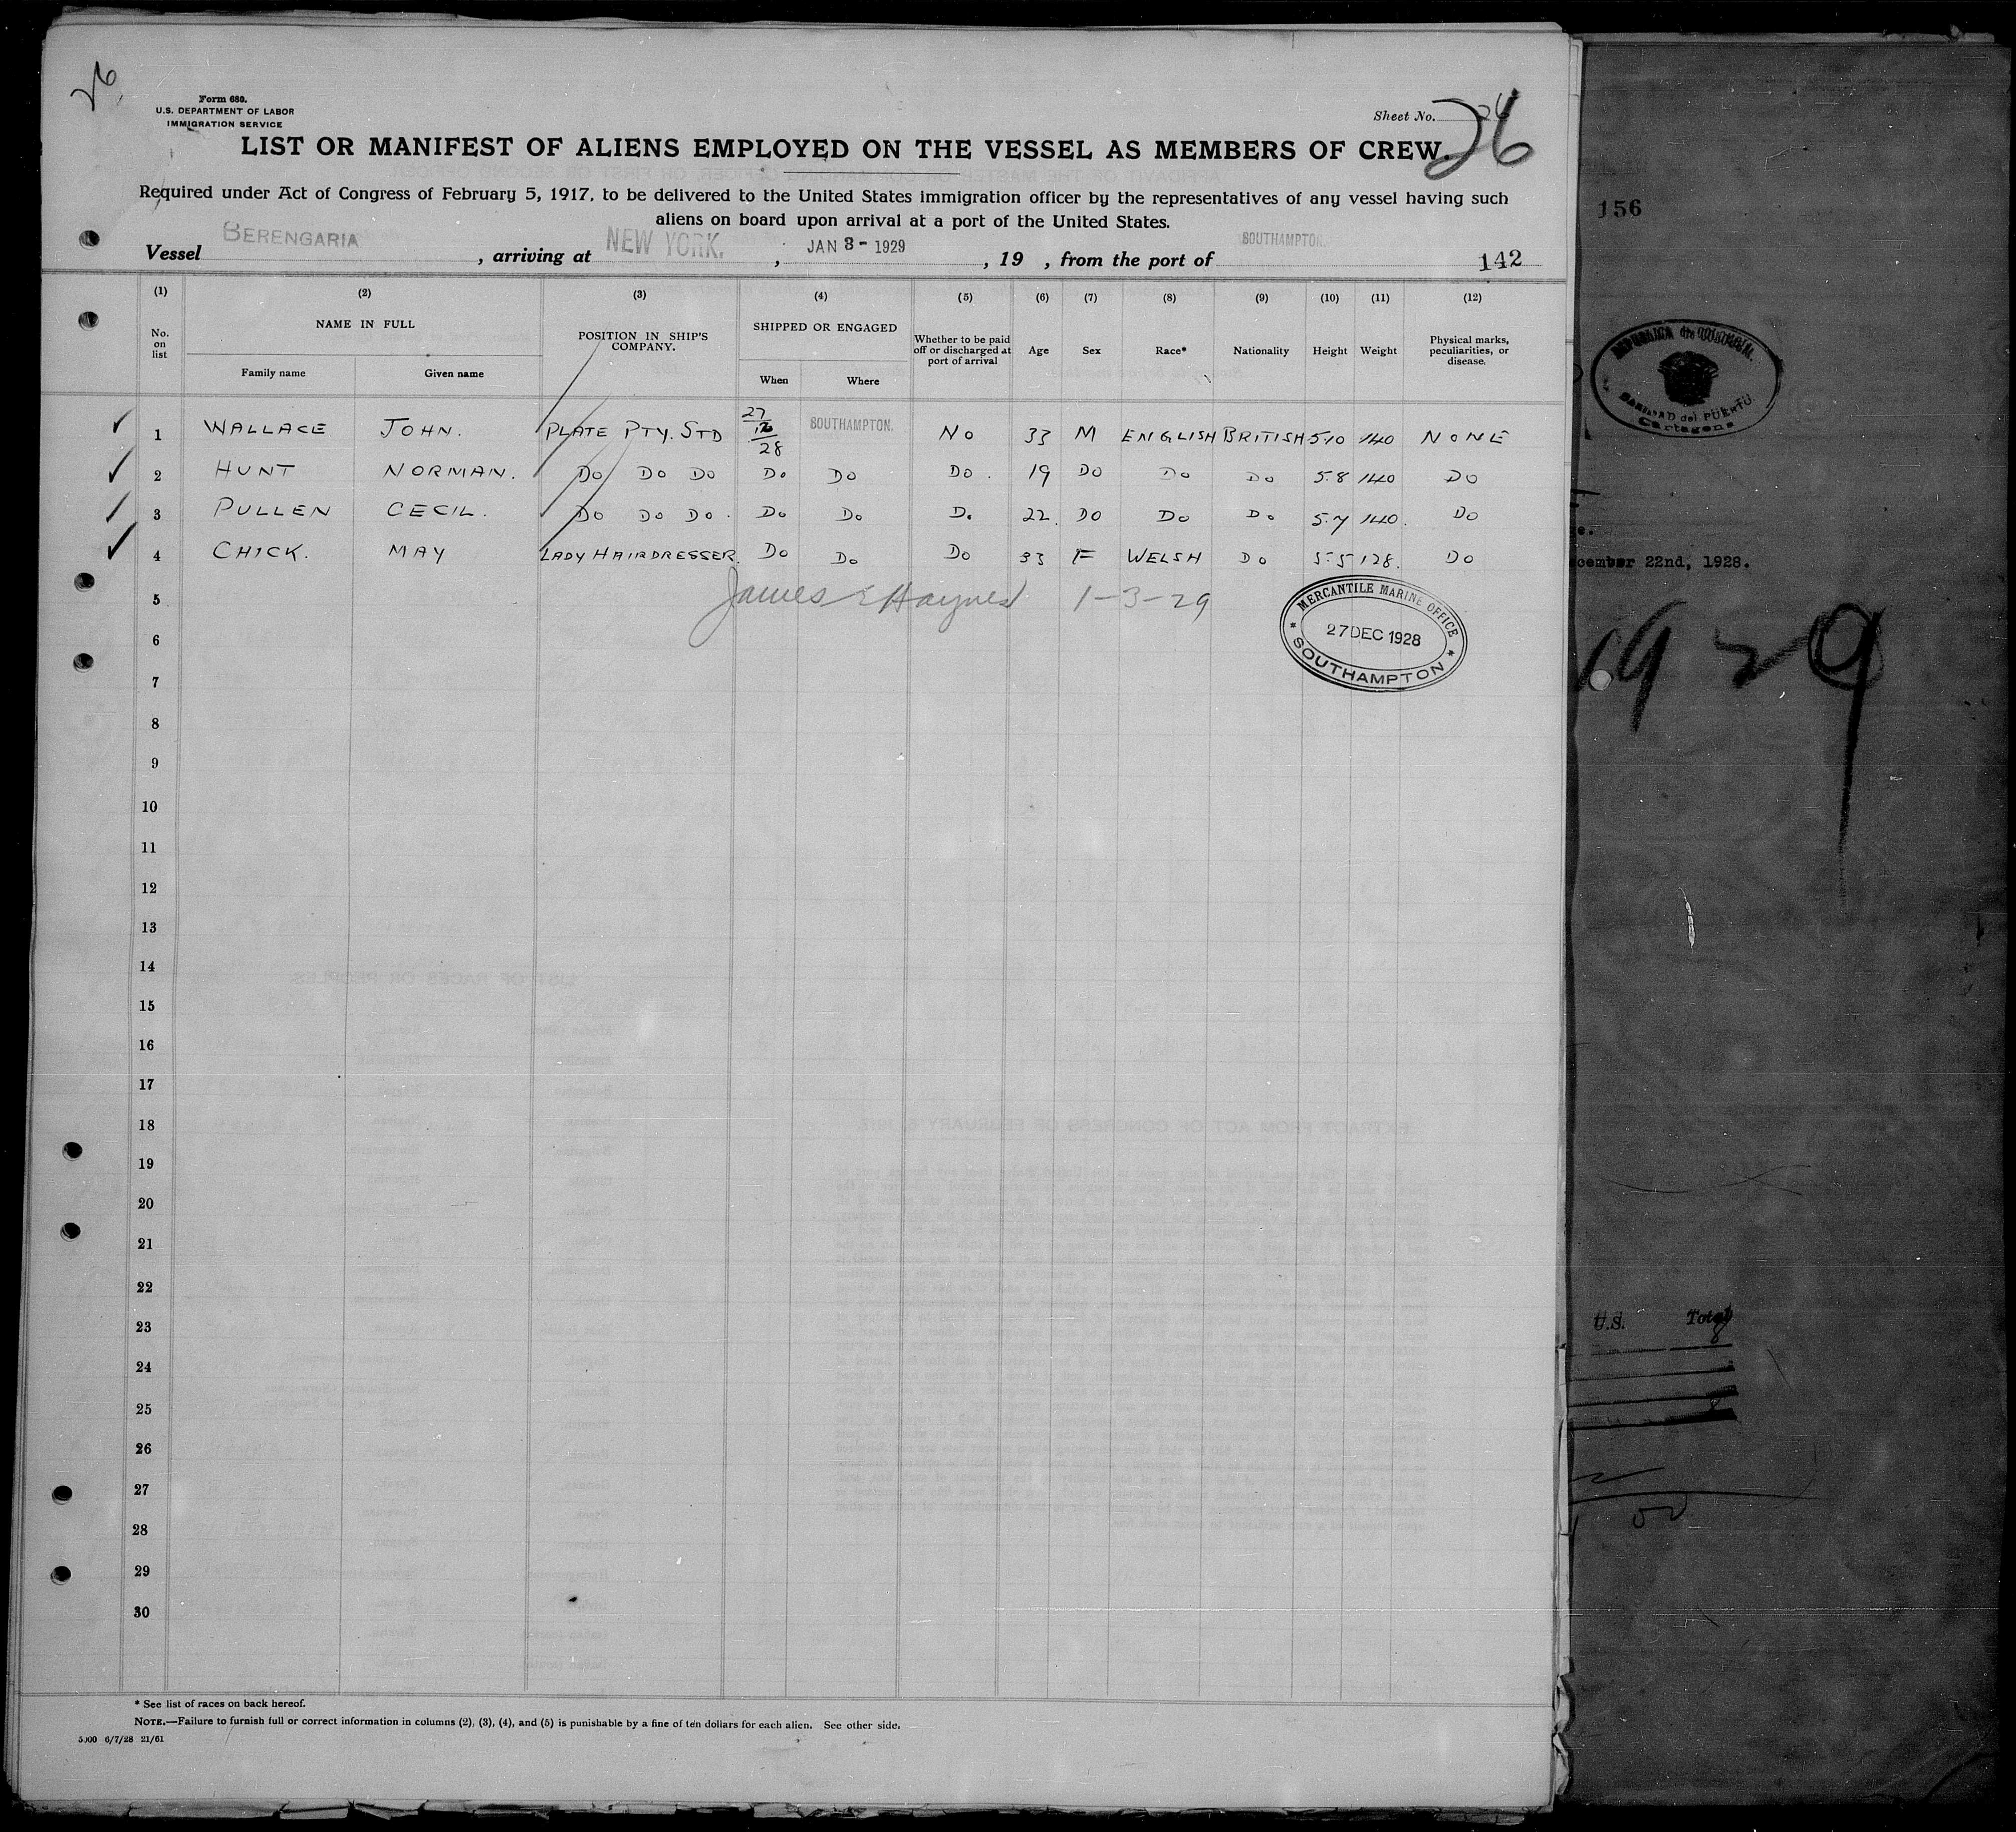 26
Form 680.
U.S. DEPARTMENT OF LABOR
IMMIGRATION SERVICE
Sheet No. 26
26
LIST OR MANIFEST OF ALIENS EMPLOYED ON THE VESSEL AS MEMBERS OF CREW.
Required under Act of Congress of February 5, 1917, to be delivered to the United States immigration officer by the representatives of any vessel having such
aliens on board upon arrival at a port of the United States.
Vessel BERENGARIA, arriving at NEW YORK., JAN 3- 1929, 19 , from the port of SOUTHAMPTON. 142
(1) (2) (3) (4) (5) (6) (7) (8) (9) (10) (11) (12)
No. on list NAME IN FULL Family name Given name POSITION IN SHIP'S COMPANY. SHIPPED OR ENGAGED When Where Whether to be paid off or discharged at port of arrival Age Sex Race* Nationality Height Weight Physical marks, peculiarities, or disease.
1 WALLACE JOHN. PLATE PTY. STD 27/12/28 SOUTHAMPTON. NO 33 M ENGLISH BRITISH 5.10 140 NONE
2 HUNT NORMAN. DO DO DO DO DO DO. 19 DO DO DO 5.8 140 DO
3 PULLEN CECIL. DO DO DO. DO DO D. 22. DO DO DO 5.7 140. DO
4 CHICK. MAY LADY HAIRDRESSER. DO DO DO 33 F WELSH DO 5.5 128. DO
5 James E Haynes 1-3-29
MERCANTILE MARINE OFFICE
27 DEC 1928
SOUTHAMPTON
6
7
8
9
10
11
12
13
14
15
16
17
18
19
20
21
22
23
24
25
26
27
28
29
30
* See list of races on back hereof.
NOTE.—Failure to furnish full or correct information in columns (2), (3), (4), and (5) is punishable by a fine of ten dollars for each alien. See other side.
5000 6/7/28 21/61
156
REPUBLICA de COLOMBIA.
SANIDAD del PUERTO
Cartagena
22nd, 1928.
1929
U.S. Total
8